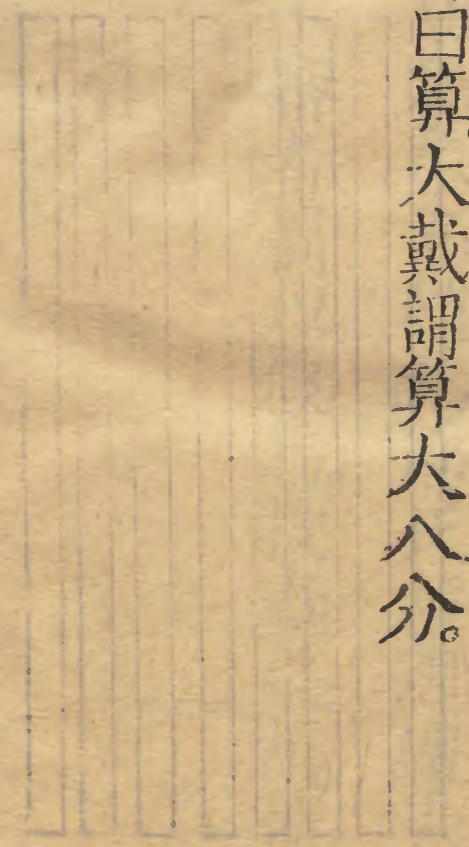 曰算大戴謂算大八分。